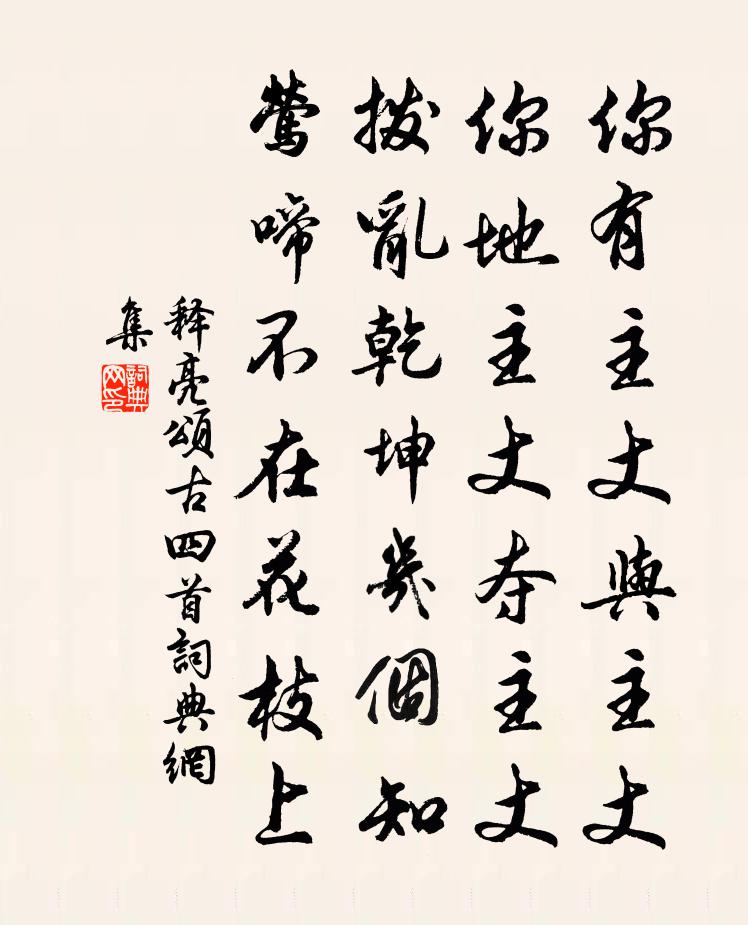 你有主丈與主丈
你地主丈夺主丈
拨亂乾坤幾個知
鶯啼不在花枝上
释亮頌古四首詞典網
集
詞典
网印